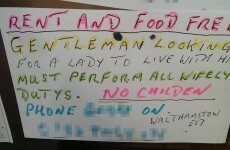 RENT AND FOOD FREE
GENTLEMAN LOOKING
FOR A LADY TO LIVE WITH HI
MUST PERFORM ALL WIFELY
DUTYS. NO CHILDEN
PHONE ON.
WALTHAMSTOW
E17